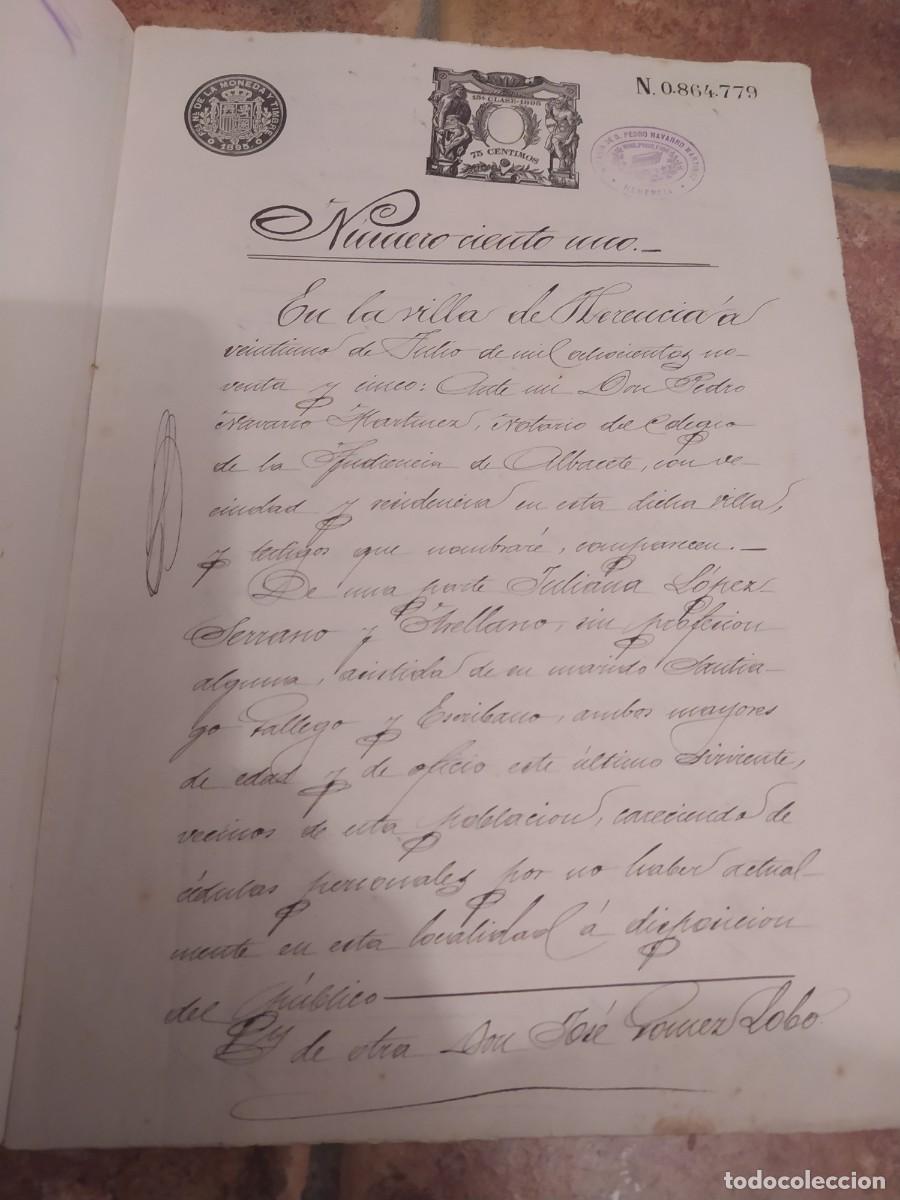 FCA. NAL. DE LA MONEDA Y TIMBRE
1895
13ª CLASE-1895
75 CENTIMOS
N. 0.864.779
D. PEDRO NAVARRO MARTINEZ
HERENCIA
Número ciento uno.—
En la villa de Herencia á
veintiuno de Julio de mil ochocientos no-
venta y cinco: Ante mi Don Pedro
Navarro Martinez, Notario del Colegio
de la Audiencia de Albacete, con ve-
cindad y residencia en esta dicha villa,
y testigos que nombraré, comparecen.—
De una parte Juliana López-
Serrano y Arellano, sin profesion
alguna, asistida de su marido Santia-
go Gallego y Escribano, ambos mayores
de edad y de oficio este último sirviente,
vecinos de esta poblacion, careciendo de
cédulas personales por no haber actual-
mente en esta localidad á disposicion
del público
Y de otra Don José Gomez Lobo
todocoleccion
todocoleccion.net